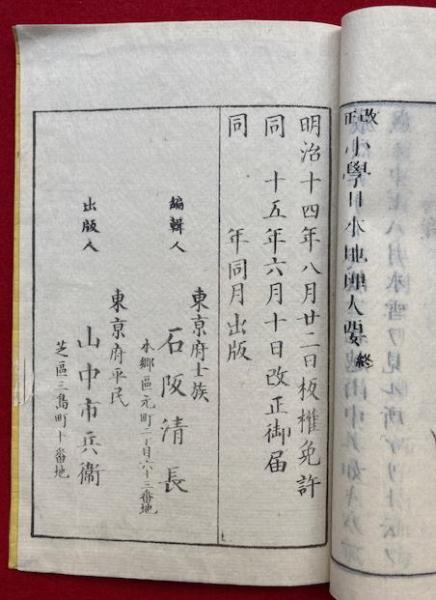 改正小學日本地理大要 終
明治十四年八月廿二日板權免許
同　十五年六月十日改正御届
同　　年同月出版
東京府士族
編輯人　石阪清長
本郷區元町二丁目六十三番地
東京府平民
出版人　山中市兵衞
芝區三島町十番地